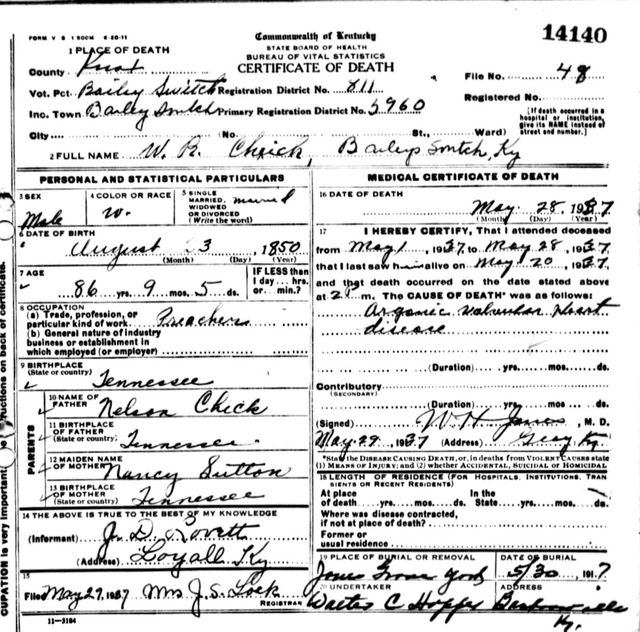 FORM V S 1 500M 6-20-11
Commonwealth of Kentucky
14140
STATE BOARD OF HEALTH
BUREAU OF VITAL STATISTICS
CERTIFICATE OF DEATH
1 PLACE OF DEATH
County Knox
File No. 48
Vot. Pct Bailey Switch Registration District No. 811
Registered No.
Inc. Town Bailey Switch Primary Registration District No. 5960
[If death occurred in a hospital or institution, give its NAME instead of street and number.]
City (No. St., Ward)
2 FULL NAME W. R. Cheick, Baileys Switch, Ky
PERSONAL AND STATISTICAL PARTICULARS
3 SEX Male
4 COLOR OR RACE W.
5 SINGLE MARRIED, WIDOWED OR DIVORCED (Write the word) married
6 DATE OF BIRTH
August 3 1850
(Month) (Day) (Year)
7 AGE
86 yrs. 9 mos. 5 ds.
IF LESS than 1 day... hrs. or min.?
8 OCCUPATION
(a) Trade, profession, or particular kind of work Preacher
(b) General nature of industry business or establishment in which employed (or employer)
9 BIRTHPLACE
(State or country) Tennessee
PARENTS
10 NAME OF FATHER Nelson Cheick
11 BIRTHPLACE OF FATHER
(State or country) Tennessee
12 MAIDEN NAME OF MOTHER Nancy Sutton
13 BIRTHPLACE OF MOTHER
(State or country) Tennessee
14 THE ABOVE IS TRUE TO THE BEST OF MY KNOWLEDGE
(Informant) J. D. Lovett
(Address) Loyall Ky
15
Filed May 29, 1937 Mrs J. S. Lock
REGISTRAR
11-3184
MEDICAL CERTIFICATE OF DEATH
16 DATE OF DEATH
May 28 1937
(Month) (Day) (Year)
17 I HEREBY CERTIFY, That I attended deceased
from May 1, 1937, to May 28, 1937,
that I last saw him alive on May 20, 1937,
and that death occurred on the date stated above
at m. The CAUSE OF DEATH* was as follows:
Organic valvular Heart
disease
(Duration) yrs. mos. ds.
Contributory
(SECONDARY)
(Duration) yrs. mos. ds.
(Signed) W. H. Jones, M. D.
May 29 1937 (Address) Gray Ky.
*State the DISEASE CAUSING DEATH, or, in deaths from VIOLENT CAUSES state
(1) MEANS OF INJURY; and (2) whether ACCIDENTAL, SUICIDAL or HOMICIDAL
18 LENGTH OF RESIDENCE (FOR HOSPITALS, INSTITUTIONS, TRANSIENTS OR RECENT RESIDENTS)
At place of death yrs. mos. ds. In the State yrs. mos. ds.
Where was disease contracted,
if not at place of death?
Former or
usual residence
19 PLACE OF BURIAL OR REMOVAL
Jones Grove
DATE OF BURIAL
5/30 1917
20 UNDERTAKER
Walter C Hopper
ADDRESS
Barbourville
Ky.
CUPATION is very important.
uctions on back of certificate.